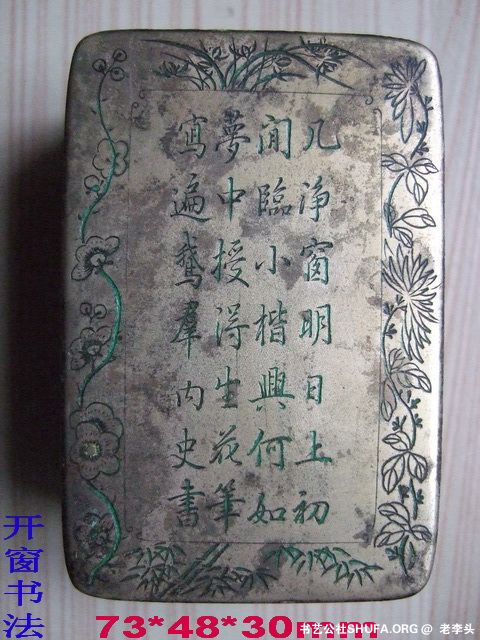 凡淨窗明日上初
閒臨小楷興何如
夢中授得生花筆
寫遍鵞羣内史書
开窗书法
73*48*30mm
书艺公社SHUFA.ORG @ 老李头